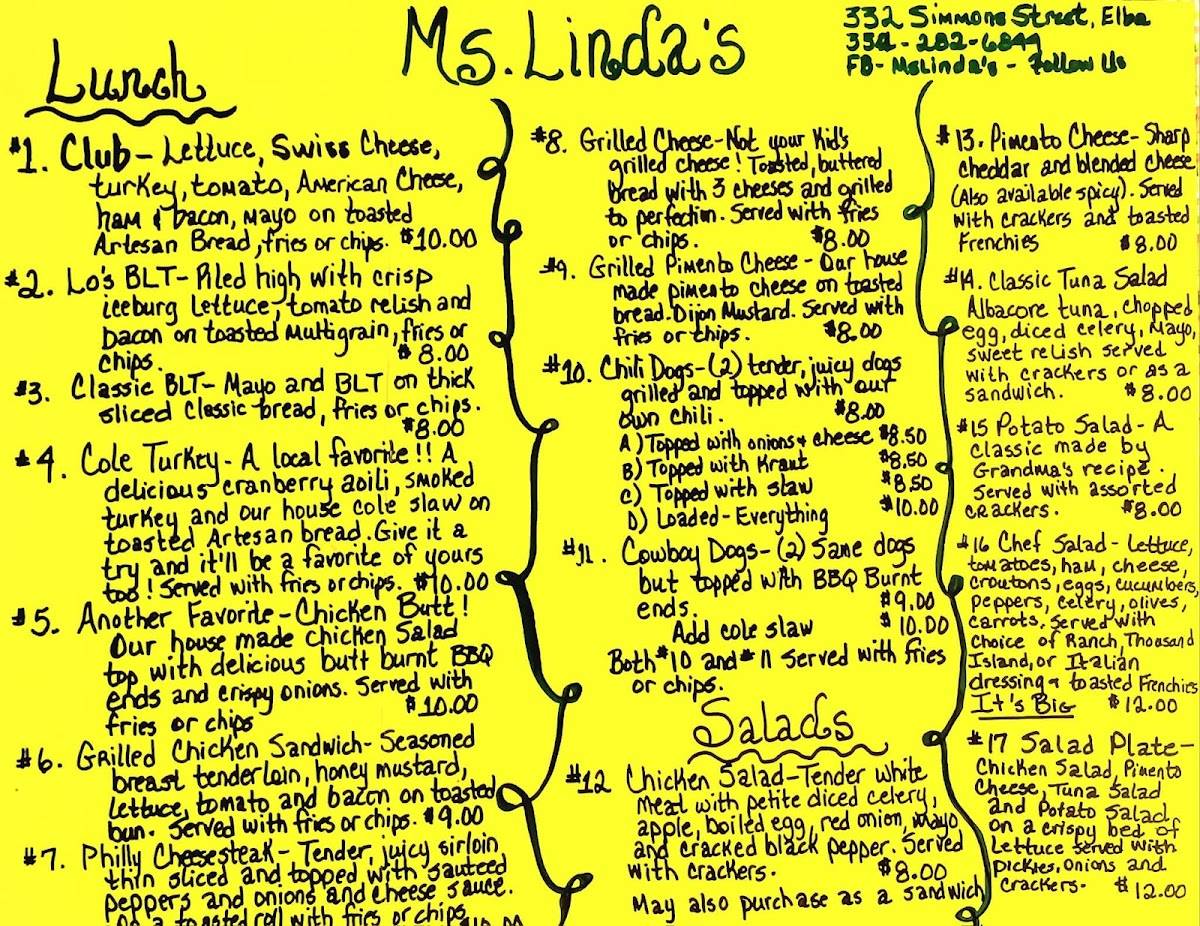 Ms. Linda's
332 Simmons Street, Elba
334-282-6844
FB- MsLinda's - Follow Us
Lunch
#1. Club - Lettuce, Swiss Cheese,
turkey, tomato, American Cheese,
ham & bacon, Mayo on toasted
Artesan Bread, fries or chips. $10.00
#2. Lo's BLT- Piled high with crisp
iceburg lettuce, tomato relish and
bacon on toasted Multigrain, fries or
chips. $8.00
#3. Classic BLT- Mayo and BLT on thick
sliced classic bread, fries or chips.
$8.00
#4. Cole Turkey - A local favorite!! A
delicious cranberry aoili, smoked
turkey and our house cole slaw on
toasted Artesan bread. Give it a
try and it'll be a favorite of yours
too! Served with fries or chips. $10.00
#5. Another Favorite - Chicken Butt!
Our house made chicken Salad
top with delicious butt burnt BBQ
ends and crispy onions. Served with
fries or chips $10.00
#6. Grilled Chicken Sandwich- Seasoned
breast tenderloin, honey mustard,
lettuce, tomato and bacon on toasted
bun. Served with fries or chips. $9.00
#7. Philly Cheesesteak - Tender, juicy sirloin
thin sliced and topped with sauteed
peppers and onions and cheese sauce.
a toasted roll with fries or chips
#8. Grilled Cheese - Not your kid's
grilled cheese! Toasted, buttered
bread with 3 cheeses and grilled
to perfection. Served with fries
or chips. $8.00
#9. Grilled Pimento Cheese - Our house
made pimento cheese on toasted
bread. Dijon Mustard. Served with
fries or chips. $8.00
#10. Chili Dogs - (2) tender, juicy dogs
grilled and topped with our
own chili. $8.00
A) Topped with onions & cheese $8.50
B) Topped with Kraut $8.50
C) Topped with slaw $8.50
D) Loaded - Everything $10.00
#11. Cowboy Dogs - (2) Same dogs
but topped with BBQ Burnt
ends. $9.00
Add cole slaw $10.00
Both #10 and #11 Served with fries
or chips.
Salads
#12 Chicken Salad - Tender white
meat with petite diced celery,
apple, boiled egg, red onion, mayo
and cracked black pepper. Served
with crackers. $8.00
May also purchase as a sandwich
#13. Pimento Cheese - Sharp
cheddar and blended cheese
(Also available spicy). Served
with crackers and toasted
Frenchies $8.00
#14. Classic Tuna Salad
Albacore tuna, chopped
egg, diced celery, Mayo,
sweet relish served
with crackers or as a
sandwich. $8.00
#15 Potato Salad - A
classic made by
Grandma's recipe.
Served with assorted
crackers. $8.00
#16 Chef Salad - Lettuce,
tomatoes, ham, cheese,
croutons, eggs, cucumbers,
peppers, celery, olives,
carrots, served with
choice of Ranch, Thousand
Island, or Italian
dressing & toasted Frenchies
It's Big $12.00
#17 Salad Plate -
Chicken Salad, Pimento
Cheese, Tuna Salad
and Potato Salad
on a crispy bed of
lettuce served with
pickles, onions and
crackers. $12.00